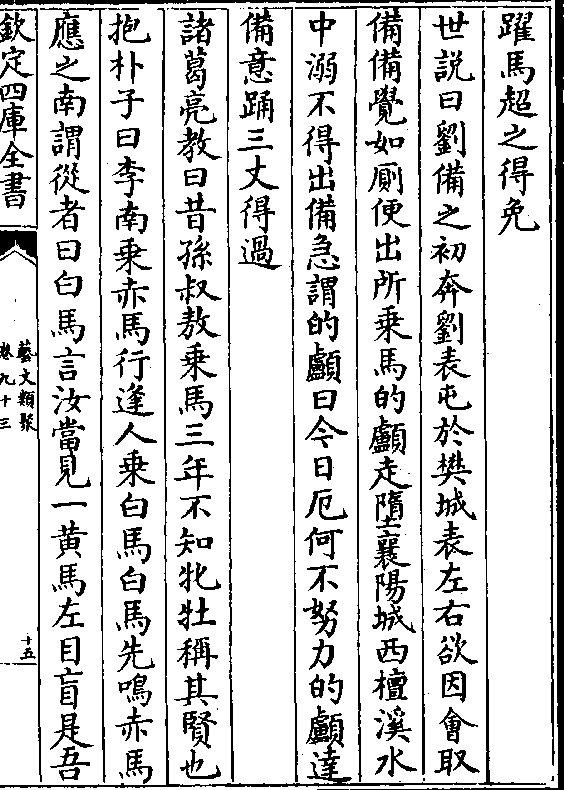 躍馬超之得免
世説曰劉備之初奔劉表屯於樊城表左右欲因會取
備備覺如厠便出所乗馬的顱走墮襄陽城西檀溪水
中溺不得出備急謂的顱曰今日厄何不努力的顱達
備意踊三丈得過
諸葛亮教曰昔孫叔敖乗馬三年不知牝牡稱其賢也
抱朴子曰李南乗赤馬行逢人乗白馬白馬先鳴赤馬
應之南謂從者曰白馬言汝當見一黄馬左目盲是吾
欽定四庫全書
藝文類聚
卷九十三
十五